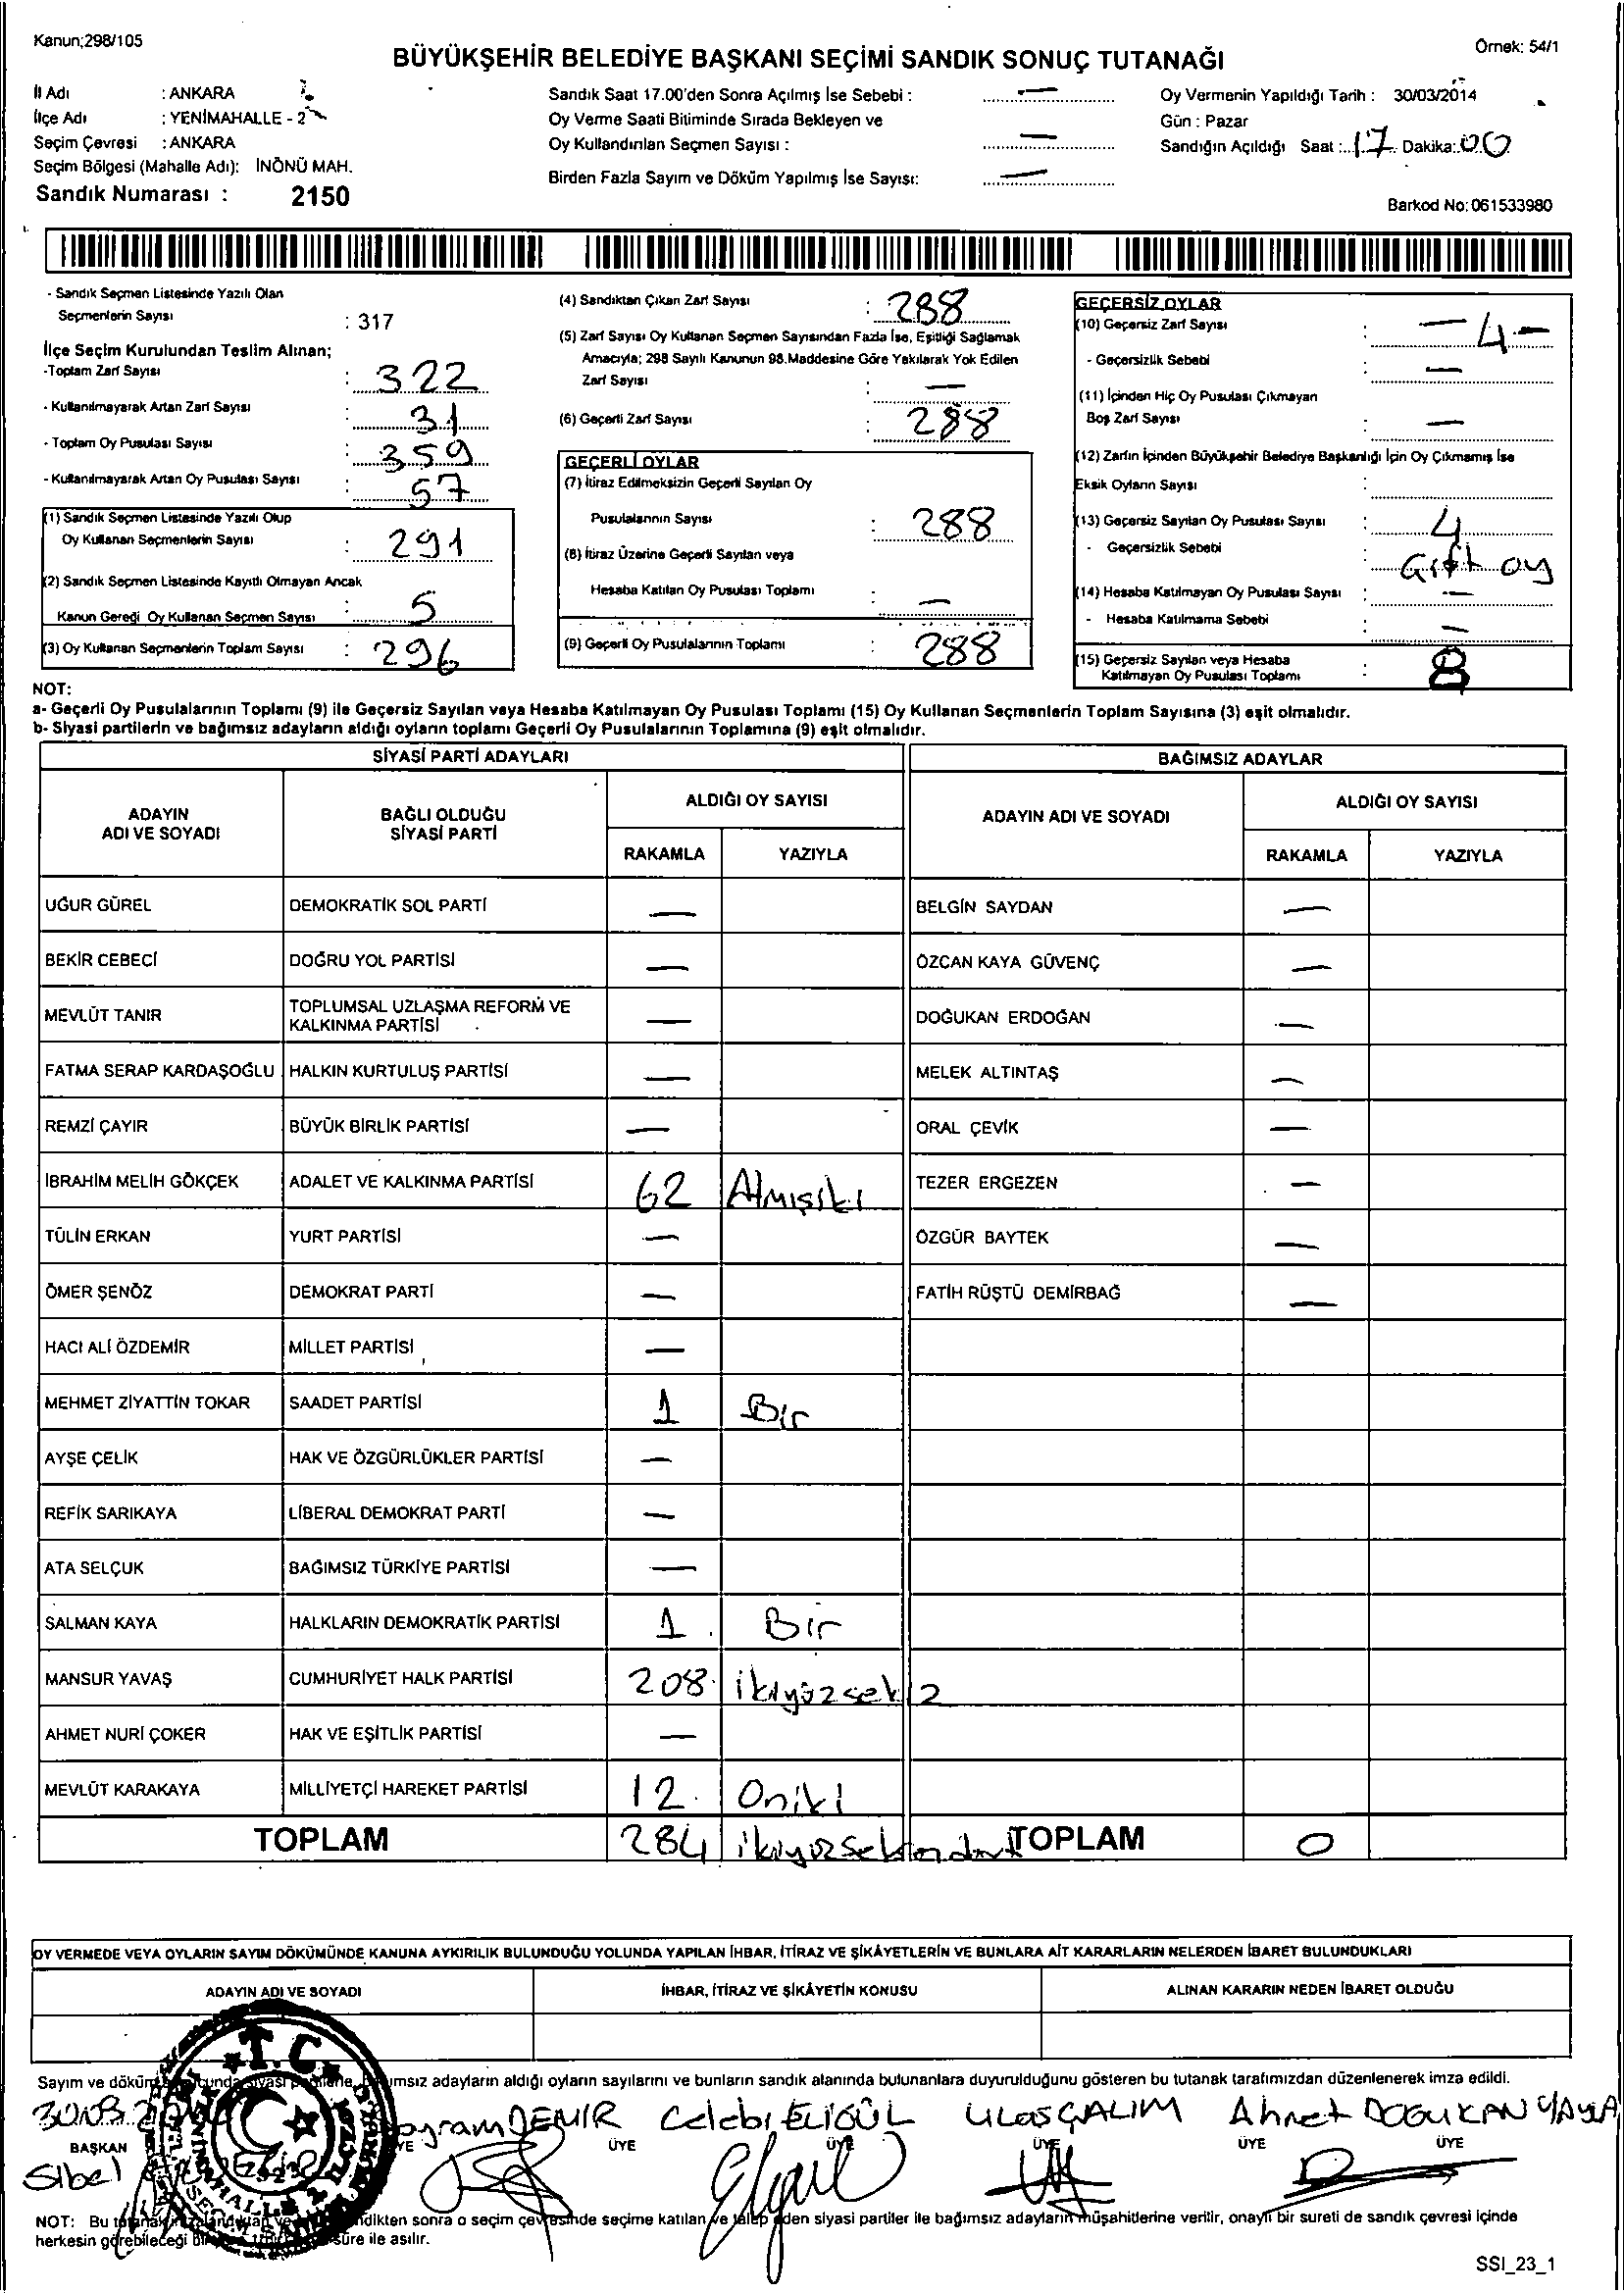 Kanun;298/105
Örnek: 54/1
BÜYÜKŞEHİR BELEDİYE BAŞKANI SEÇİMİ SANDIK SONUÇ TUTANAĞI
İl Adı : ANKARA
İlçe Adı : YENİMAHALLE - 2
Seçim Çevresi : ANKARA
Seçim Bölgesi (Mahalle Adı): İNÖNÜ MAH.
Sandık Numarası : 2150
Sandık Saat 17.00'den Sonra Açılmış İse Sebebi : —
Oy Verme Saati Bitiminde Sırada Bekleyen ve
Oy Kullandırılan Seçmen Sayısı : —
Birden Fazla Sayım ve Döküm Yapılmış İse Sayısı: —
Oy Vermenin Yapıldığı Tarih : 30/03/2014
Gün : Pazar
Sandığın Açıldığı Saat : 17 Dakika: 00
Barkod No: 061533980
- Sandık Seçmen Listesinde Yazılı Olan
Seçmenlerin Sayısı : 317
İlçe Seçim Kurulundan Teslim Alınan;
-Toplam Zarf Sayısı : 322
- Kullanılmayarak Artan Zarf Sayısı : 31
- Toplam Oy Pusulası Sayısı : 359
- Kullanılmayarak Artan Oy Pusulası Sayısı : 57
(1) Sandık Seçmen Listesinde Yazılı Olup
Oy Kullanan Seçmenlerin Sayısı : 291
(2) Sandık Seçmen Listesinde Kayıtlı Olmayan Ancak
Kanun Gereği Oy Kullanan Seçmen Sayısı : 5
(3) Oy Kullanan Seçmenlerin Toplam Sayısı : 296
(4) Sandıktan Çıkan Zarf Sayısı : 288
(5) Zarf Sayısı Oy Kullanan Seçmen Sayısından Fazla İse, Eşitliği Sağlamak
Amacıyla; 298 Sayılı Kanunun 98.Maddesine Göre Yakılarak Yok Edilen
Zarf Sayısı : —
(6) Geçerli Zarf Sayısı : 288
GEÇERLİ OYLAR
(7) İtiraz Edilmeksizin Geçerli Sayılan Oy
Pusulalarının Sayısı : 288
(8) İtiraz Üzerine Geçerli Sayılan veya
Hesaba Katılan Oy Pusulası Toplamı : —
(9) Geçerli Oy Pusulalarının Toplamı : 288
GEÇERSİZ OYLAR
(10) Geçersiz Zarf Sayısı : — 4 —
- Geçersizlik Sebebi : —
(11) İçinden Hiç Oy Pusulası Çıkmayan
Boş Zarf Sayısı : —
(12) Zarfın İçinden Büyükşehir Belediye Başkanlığı İçin Oy Çıkmamış İse
Eksik Oyların Sayısı :
(13) Geçersiz Sayılan Oy Pusulası Sayısı : 4
- Geçersizlik Sebebi : Çift oy
(14) Hesaba Katılmayan Oy Pusulası Sayısı : —
- Hesaba Katılmama Sebebi : —
(15) Geçersiz Sayılan veya Hesaba
Katılmayan Oy Pusulası Toplamı : 8
NOT:
a- Geçerli Oy Pusulalarının Toplamı (9) ile Geçersiz Sayılan veya Hesaba Katılmayan Oy Pusulası Toplamı (15) Oy Kullanan Seçmenlerin Toplam Sayısına (3) eşit olmalıdır.
b- Siyasi partilerin ve bağımsız adayların aldığı oyların toplamı Geçerli Oy Pusulalarının Toplamına (9) eşit olmalıdır.
SİYASİ PARTİ ADAYLARI BAĞIMSIZ ADAYLAR
ADAYIN ADI VE SOYADI BAĞLI OLDUĞU SİYASİ PARTİ ALDIĞI OY SAYISI ADAYIN ADI VE SOYADI ALDIĞI OY SAYISI
RAKAMLA YAZIYLA RAKAMLA YAZIYLA
UĞUR GÜREL DEMOKRATİK SOL PARTİ — BELGİN SAYDAN —
BEKİR CEBECİ DOĞRU YOL PARTİSİ — ÖZCAN KAYA GÜVENÇ —
MEVLÜT TANIR TOPLUMSAL UZLAŞMA REFORM VE KALKINMA PARTİSİ — DOĞUKAN ERDOĞAN —
FATMA SERAP KARDAŞOĞLU HALKIN KURTULUŞ PARTİSİ — MELEK ALTINTAŞ —
REMZİ ÇAYIR BÜYÜK BİRLİK PARTİSİ — ORAL ÇEVİK —
İBRAHİM MELİH GÖKÇEK ADALET VE KALKINMA PARTİSİ 62 Atmışiki TEZER ERGEZEN —
TÜLİN ERKAN YURT PARTİSİ — ÖZGÜR BAYTEK —
ÖMER ŞENÖZ DEMOKRAT PARTİ — FATİH RÜŞTÜ DEMİRBAĞ —
HACI ALİ ÖZDEMİR MİLLET PARTİSİ —
MEHMET ZİYATTİN TOKAR SAADET PARTİSİ 1 Bir
AYŞE ÇELİK HAK VE ÖZGÜRLÜKLER PARTİSİ —
REFİK SARIKAYA LİBERAL DEMOKRAT PARTİ —
ATA SELÇUK BAĞIMSIZ TÜRKİYE PARTİSİ —
SALMAN KAYA HALKLARIN DEMOKRATİK PARTİSİ 1 Bir
MANSUR YAVAŞ CUMHURİYET HALK PARTİSİ 208 ikiyüzsekiz
AHMET NURİ ÇOKER HAK VE EŞİTLİK PARTİSİ —
MEVLÜT KARAKAYA MİLLİYETÇİ HAREKET PARTİSİ 12 Oniki
TOPLAM 284 ikiyüzseksendört TOPLAM 0
OY VERMEDE VEYA OYLARIN SAYIM DÖKÜMÜNDE KANUNA AYKIRILIK BULUNDUĞU YOLUNDA YAPILAN İHBAR, İTİRAZ VE ŞİKÂYETLERİN VE BUNLARA AİT KARARLARIN NELERDEN İBARET BULUNDUKLARI
ADAYIN ADI VE SOYADI İHBAR, İTİRAZ VE ŞİKÂYETİN KONUSU ALINAN KARARIN NEDEN İBARET OLDUĞU
T.C.
Sayım ve döküm siyasi adayların aldığı oyların sayılarını ve bunların sandık alanında bulunanlara duyurulduğunu gösteren bu tutanak tarafımızdan düzenlenerek imza edildi.
DEMIR Celebi ELİGÜL Ulaş ÇALIM Ahmet DOGUKAN YAYLA
BAŞKAN ÜYE ÜYE ÜYE ÜYE ÜYE
Sibel
NOT: Bu sonra o seçim çevresinde seçime katılan ve talep eden siyasi partiler ile bağımsız adayların müşahitlerine verilir, onaylı bir sureti de sandık çevresi içinde
herkesin görebileceği süre ile asılır.
SSI_23_1